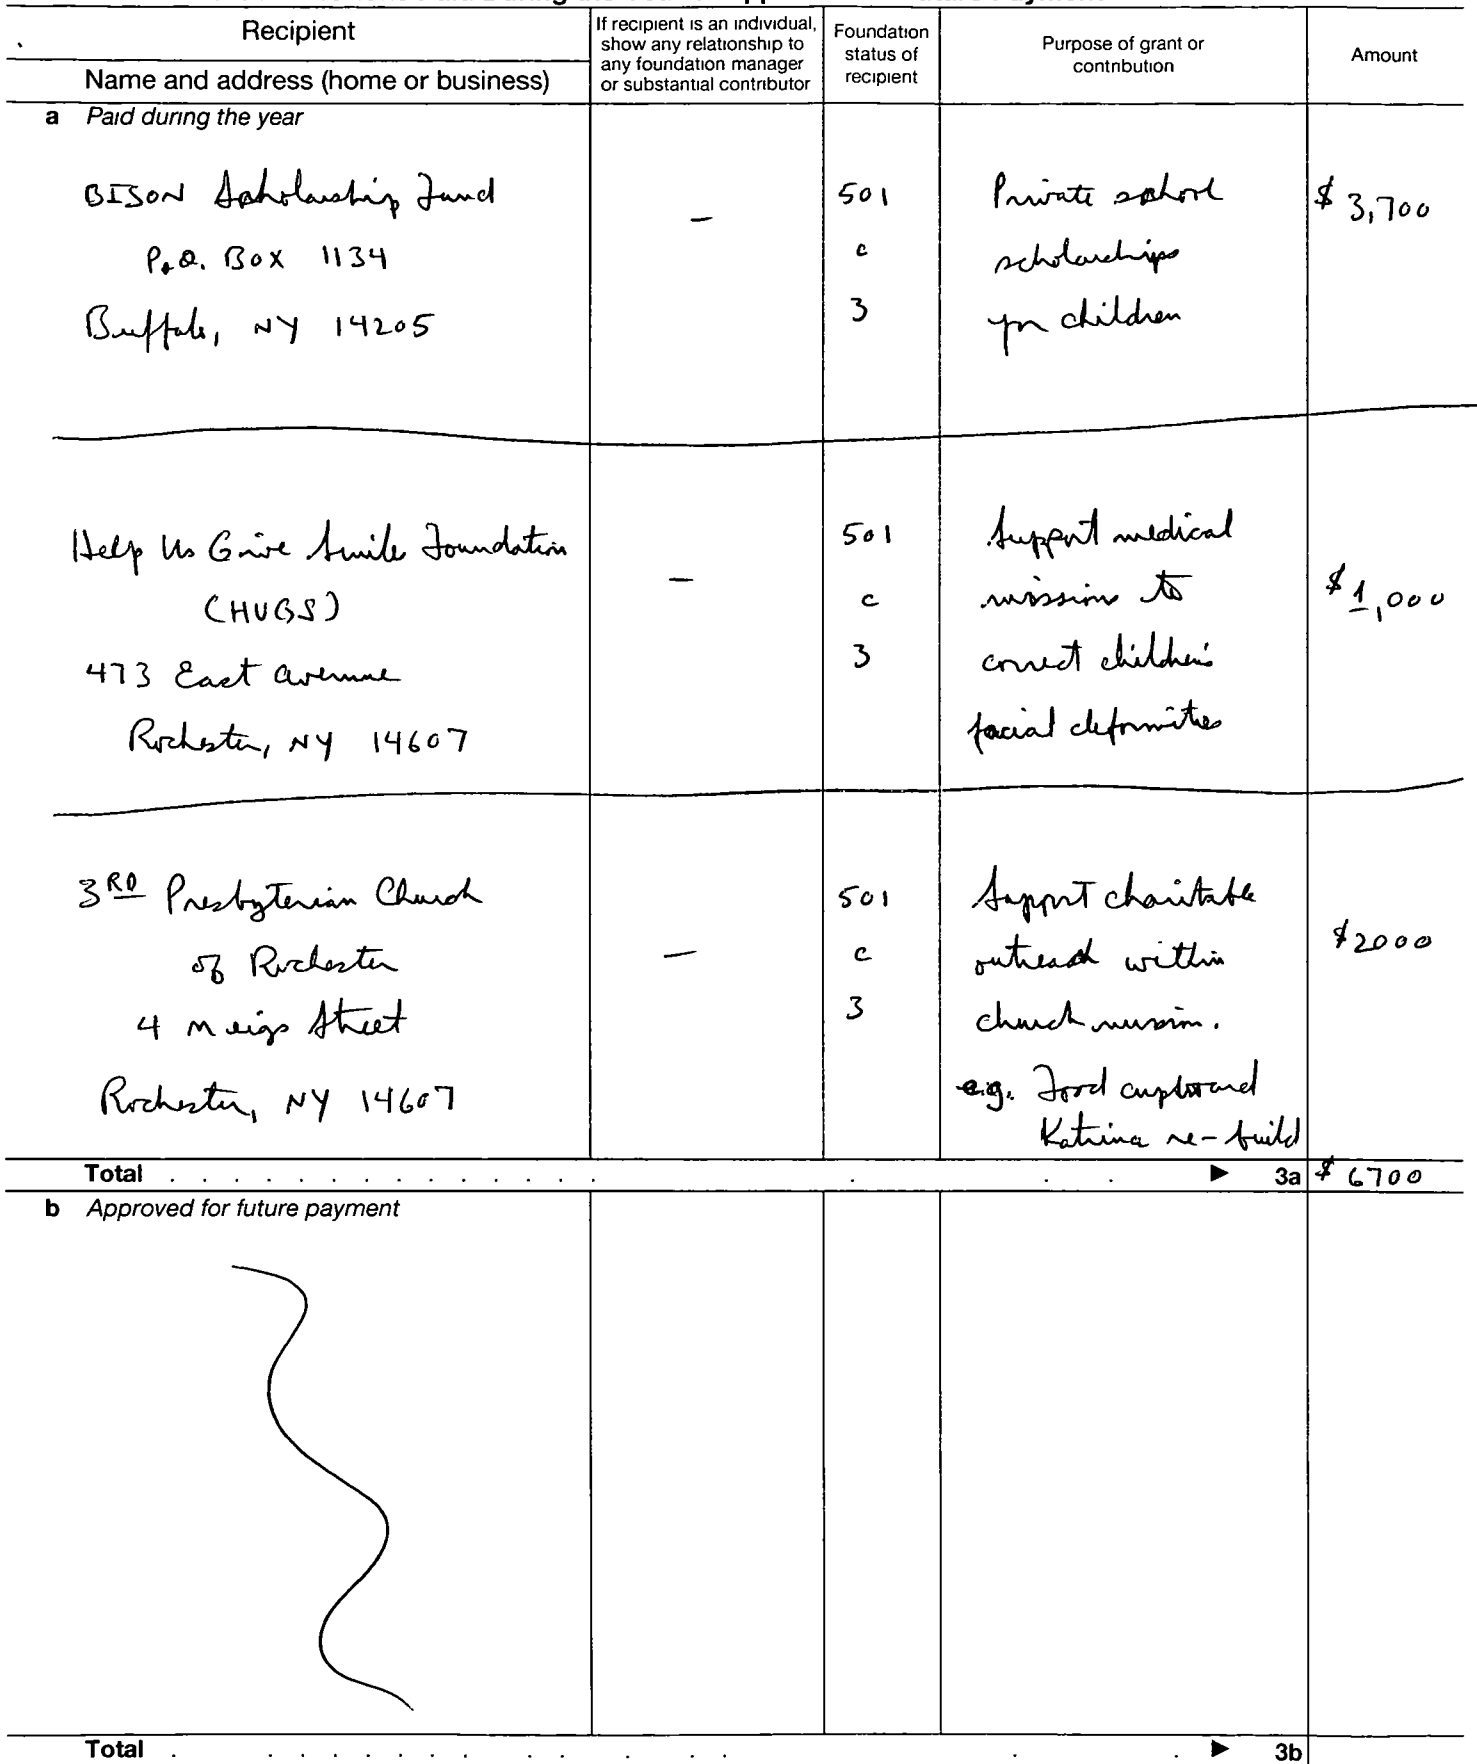 Recipient
Name and address (home or business)
If recipient is an individual,
show any relationship to
any foundation manager
or substantial contributor
Foundation
status of
recipient
Purpose of grant or
contribution
Amount
a Paid during the year
BISON Scholarship Fund
P.O. Box 1134
Buffalo, NY 14205
—
501
c
3
Private school
scholarships
for children
$ 3,700
Help Us Give Smile Foundation
(HUGS)
473 East Avenue
Rochester, NY 14607
—
501
c
3
Support medical
missions to
correct children's
facial deformities
$ 1,000
3RD Presbyterian Church
of Rochester
4 Meigs Street
Rochester, NY 14607
—
501
c
3
Support charitable
outreach within
church mission.
e.g. Food cupboard
Katrina re-build
$2000
Total . . . . . . . . . . . . . . . . . ▶ 3a $ 6700
b Approved for future payment
Total . . . . . . . . . . . . . . ▶ 3b